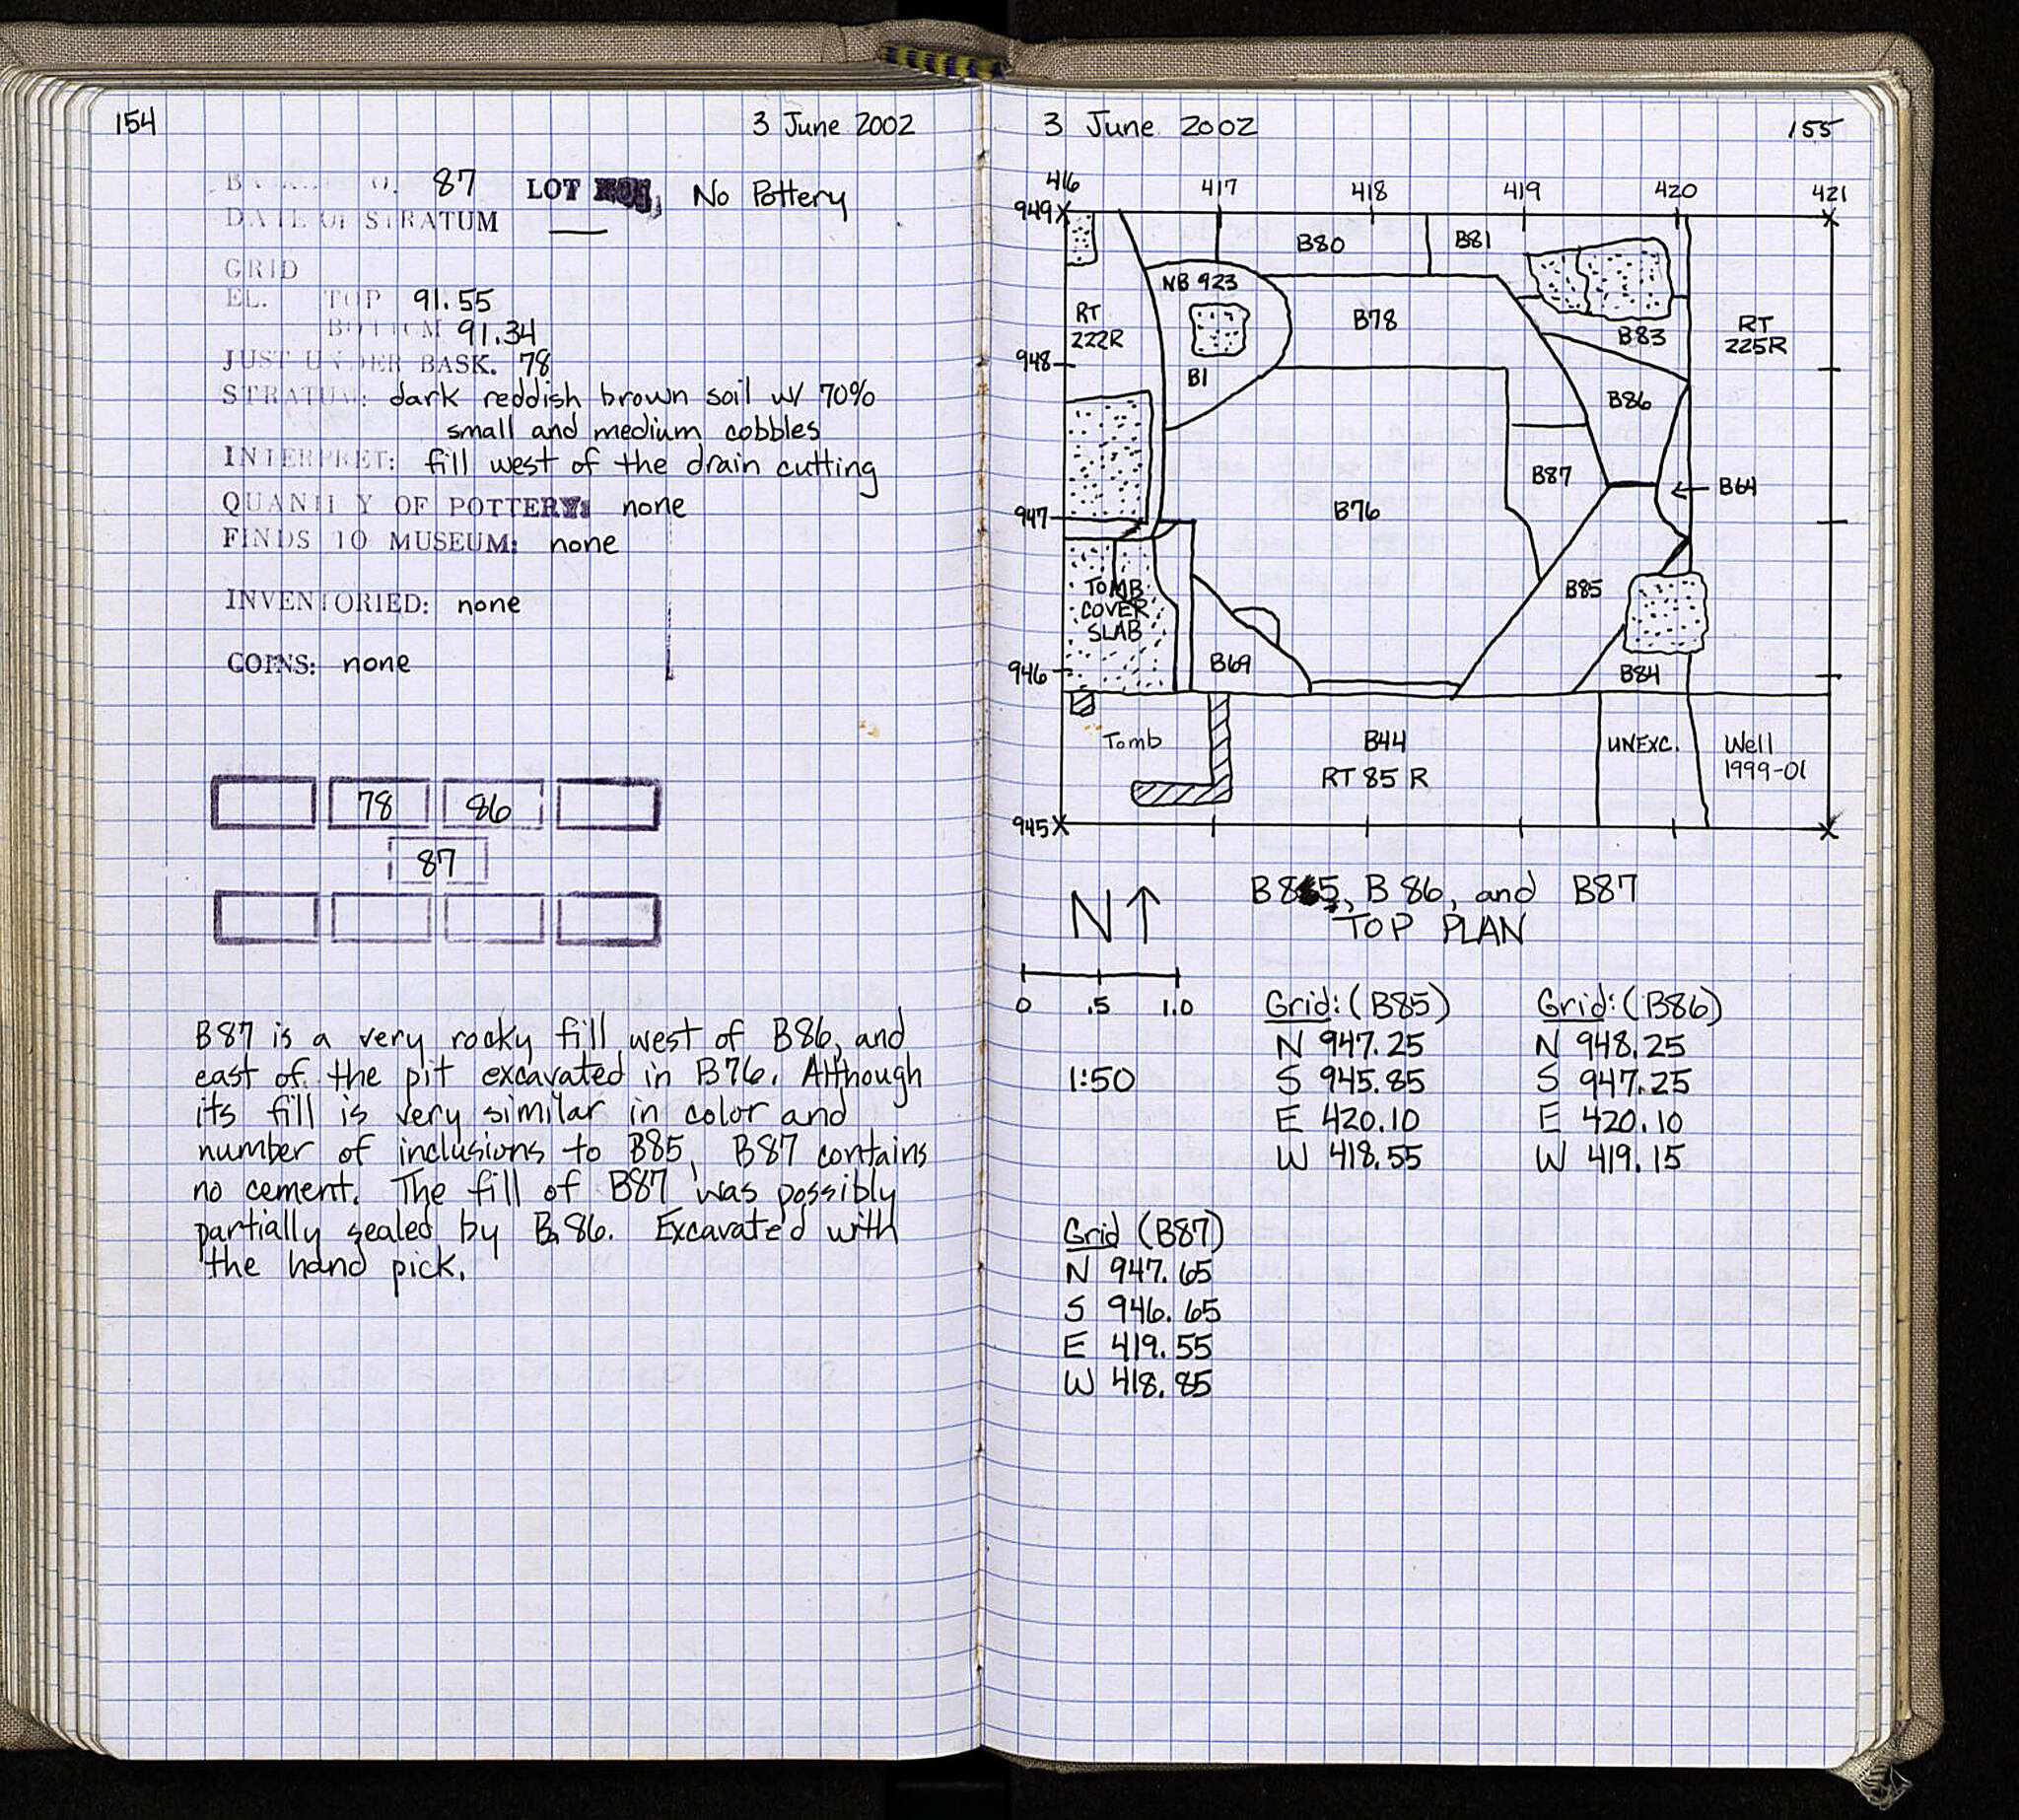 154
3 June 2002
87 LOT No Pottery
DATE OF STRATUM —
GRID
EL. TOP 91.55
BOTTOM 91.34
JUST UNDER BASK. 78
STRATUM: dark reddish brown soil w/ 70%
small and medium cobbles
INTERPRET: fill west of the drain cutting
QUANTITY OF POTTERY: none
FINDS TO MUSEUM: none
INVENTORIED: none
COINS: none
78 86
87
B87 is a very rocky fill west of B86, and
east of the pit excavated in B76. Although
its fill is very similar in color and
number of inclusions to B85, B87 contains
no cement. The fill of B87 was possibly
partially sealed by B86. Excavated with
the hand pick.
3 June 2002
155
416 417 418 419 420 421
949
B80
B81
NB 923
RT
222R
B78
B83
RT
225R
948
B1
B86
B87
B64
947
B76
TOMB
COVER
SLAB
B85
946
B69
B84
Tomb
B44
RT 85 R
UNEXC.
Well
1999-01
945
N↑
B85, B86, and B87
TOP PLAN
0 .5 1.0
1:50
Grid: (B85)
N 947.25
S 945.85
E 420.10
W 418.55
Grid: (B86)
N 948.25
S 947.25
E 420.10
W 419.15
Grid (B87)
N 947.65
S 946.65
E 419.55
W 418.85